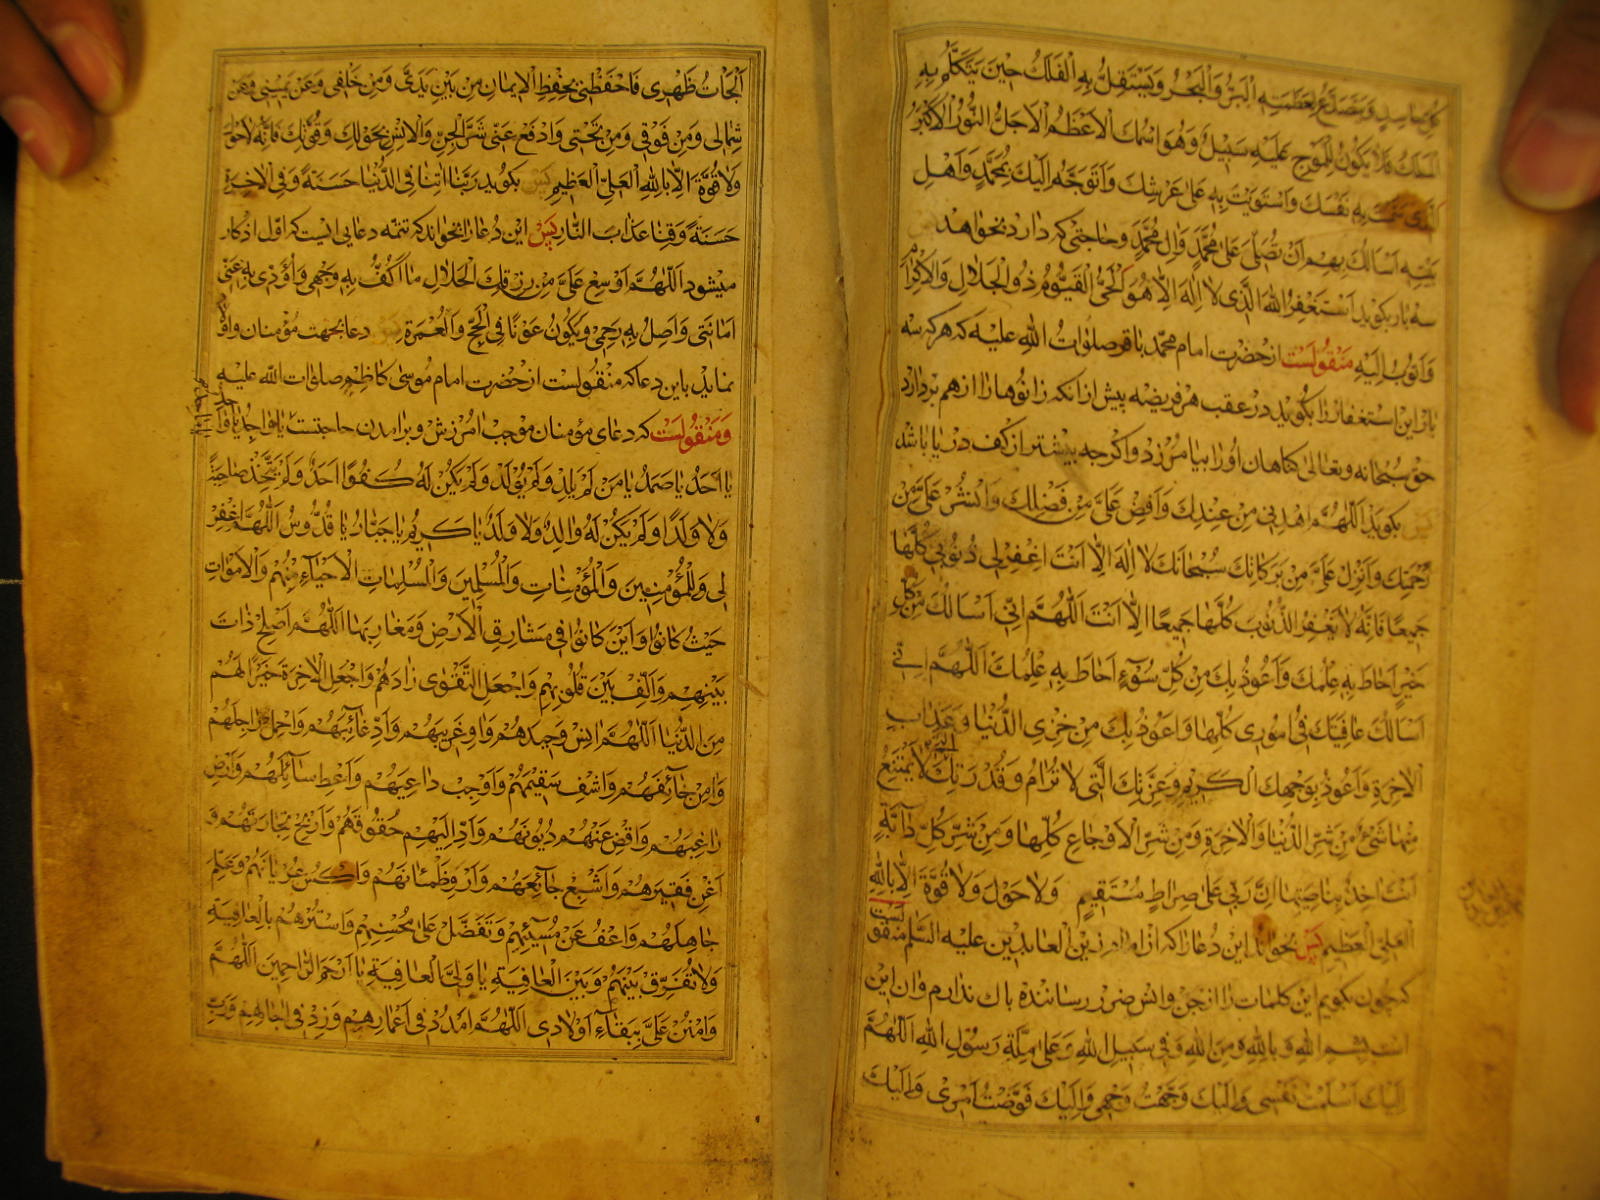 كل حاسد ويتصدع لعظمته البر والبحر ويستقل به الفلك حين يتكلم به
الملك فلا يكون للموج عليه سبيل وهو اسمك الاعظم الاجل النور الاكبر
الذى سميت به نفسك واستويت به على عرشك واتوجه اليك بمحمد واهل
بيته اسالك بهم ان تصلى على محمد وال محمد وحاجتى كه دارد بخواهد
سه بار بكويد استغفر الله الذى لا اله الا هو الحى القيوم ذو الجلال والاكرام
واتوب اليه منقولست از حضرت امام محمد باقر صلوات الله عليه كه هر كه سه
بار اين استغفار را بكويد در عقب هر فريضه پيش از انكه زانوها را از هم بردارد
حق سبحانه وتعالى كناهان او را بيامرزد واكرچه بيشتر از كف دريا باشد
پس بكويد اللهم اهدنى من عندك وافض على من فضلك وانشر على من
رحمتك وانزل على من بركاتك سبحانك لا اله الا انت اغفر لى ذنوبى كلها
جميعا فانه لا يغفر الذنوب كلها جميعا الا انت اللهم انى اسالك من كل
خير احاط به علمك واعوذ بك من كل سوء احاط به علمك اللهم انى
اسالك عافيتك فى امورى كلها واعوذ بك من خزى الدنيا وعذاب
الاخرة واعوذ بوجهك الكريم وعزتك التى لا ترام وقدرتك التى لا يمتنع
منها شىء من شر الدنيا والاخرة ومن شر الاوجاع كلها ومن شر كل دابة
انت اخذ بناصيتها ان ربى على صراط مستقيم ولا حول ولا قوة الا بالله
العلى العظيم پس بخواند اين دعا را كه از امام زين العابدين عليه السلم منقولست
كه چون بكويم اين كلمات را از جن وانس ضرر رساننده باك ندارم وان اين
است بسم الله وبالله ومن الله وفى سبيل الله وعلى ملة رسول الله اللهم
اليك اسلمت نفسى واليك وجهت وجهى واليك فوضت امرى واليك
الجات ظهرى فاحفظنى بحفظ الايمان من بين يدى ومن خلفى وعن يمينى وعن
شمالى ومن فوقى ومن تحتى وادفع عنى شر الجن والانس بحولك وقوتك فانه لا حول
ولا قوة الا بالله العلى العظيم پس بكويد ربنا اتنا فى الدنيا حسنة وفى الاخرة
حسنة وقنا عذاب النار پس اين دعا را بخواند كه تتمه دعايى است كه اول اذكار
ميشود اللهم اوسع على من رزقك الحلال ما اكف به وجهى واؤدى به عنى
امانتى واصل به رحمى ويكون عونا فى الحج والعمرة دعا بجهت مؤمنان
نمايد باين دعا كه منقولست از حضرت امام موسى كاظم صلوات الله عليه
ومنقولست كه دعاى مؤمنان موجب امرزش وبرامدن حاجتست يا واجد يا
يا احد يا صمد يا من لم يلد ولم يولد ولم يكن له كفوا احد ولم يتخذ صاحبة
ولا ولدا ولم يكن له والد ولا ولد يا كريم يا جبار يا قدوس اللهم اغفر
لى وللمؤمنين والمؤمنات والمسلمين والمسلمات الاحياء منهم والاموات
حيث كانوا واين كانوا فى مشارق الارض ومغاربها اللهم اصلح ذات
بينهم والف بين قلوبهم واجعل التقوى زادهم واجعل الاخرة خيرا لهم
من الدنيا اللهم انس وحيدهم واو غريبهم واد غائبهم واحمل راجلهم
وامن خائفهم واشف سقيمهم واوجب داعيهم واعط سائلهم وارض
راغبهم واقض عنهم ديونهم واد اليهم حقوقهم واربح تجارتهم و
اغن فقيرهم واشبع جائعهم وارو ظمئانهم واكس عريانهم وعلم
جاهلهم واعف عن مسيئهم وتفضل على محسنهم واسترهم بالعافية
ولا تفرق بينهم وبين العافية يا ولى العافية يا ارحم الراحمين اللهم
وامنن على ببقاء اولادى اللهم امدد فى اعمارهم وزد فى اجالهم ورب